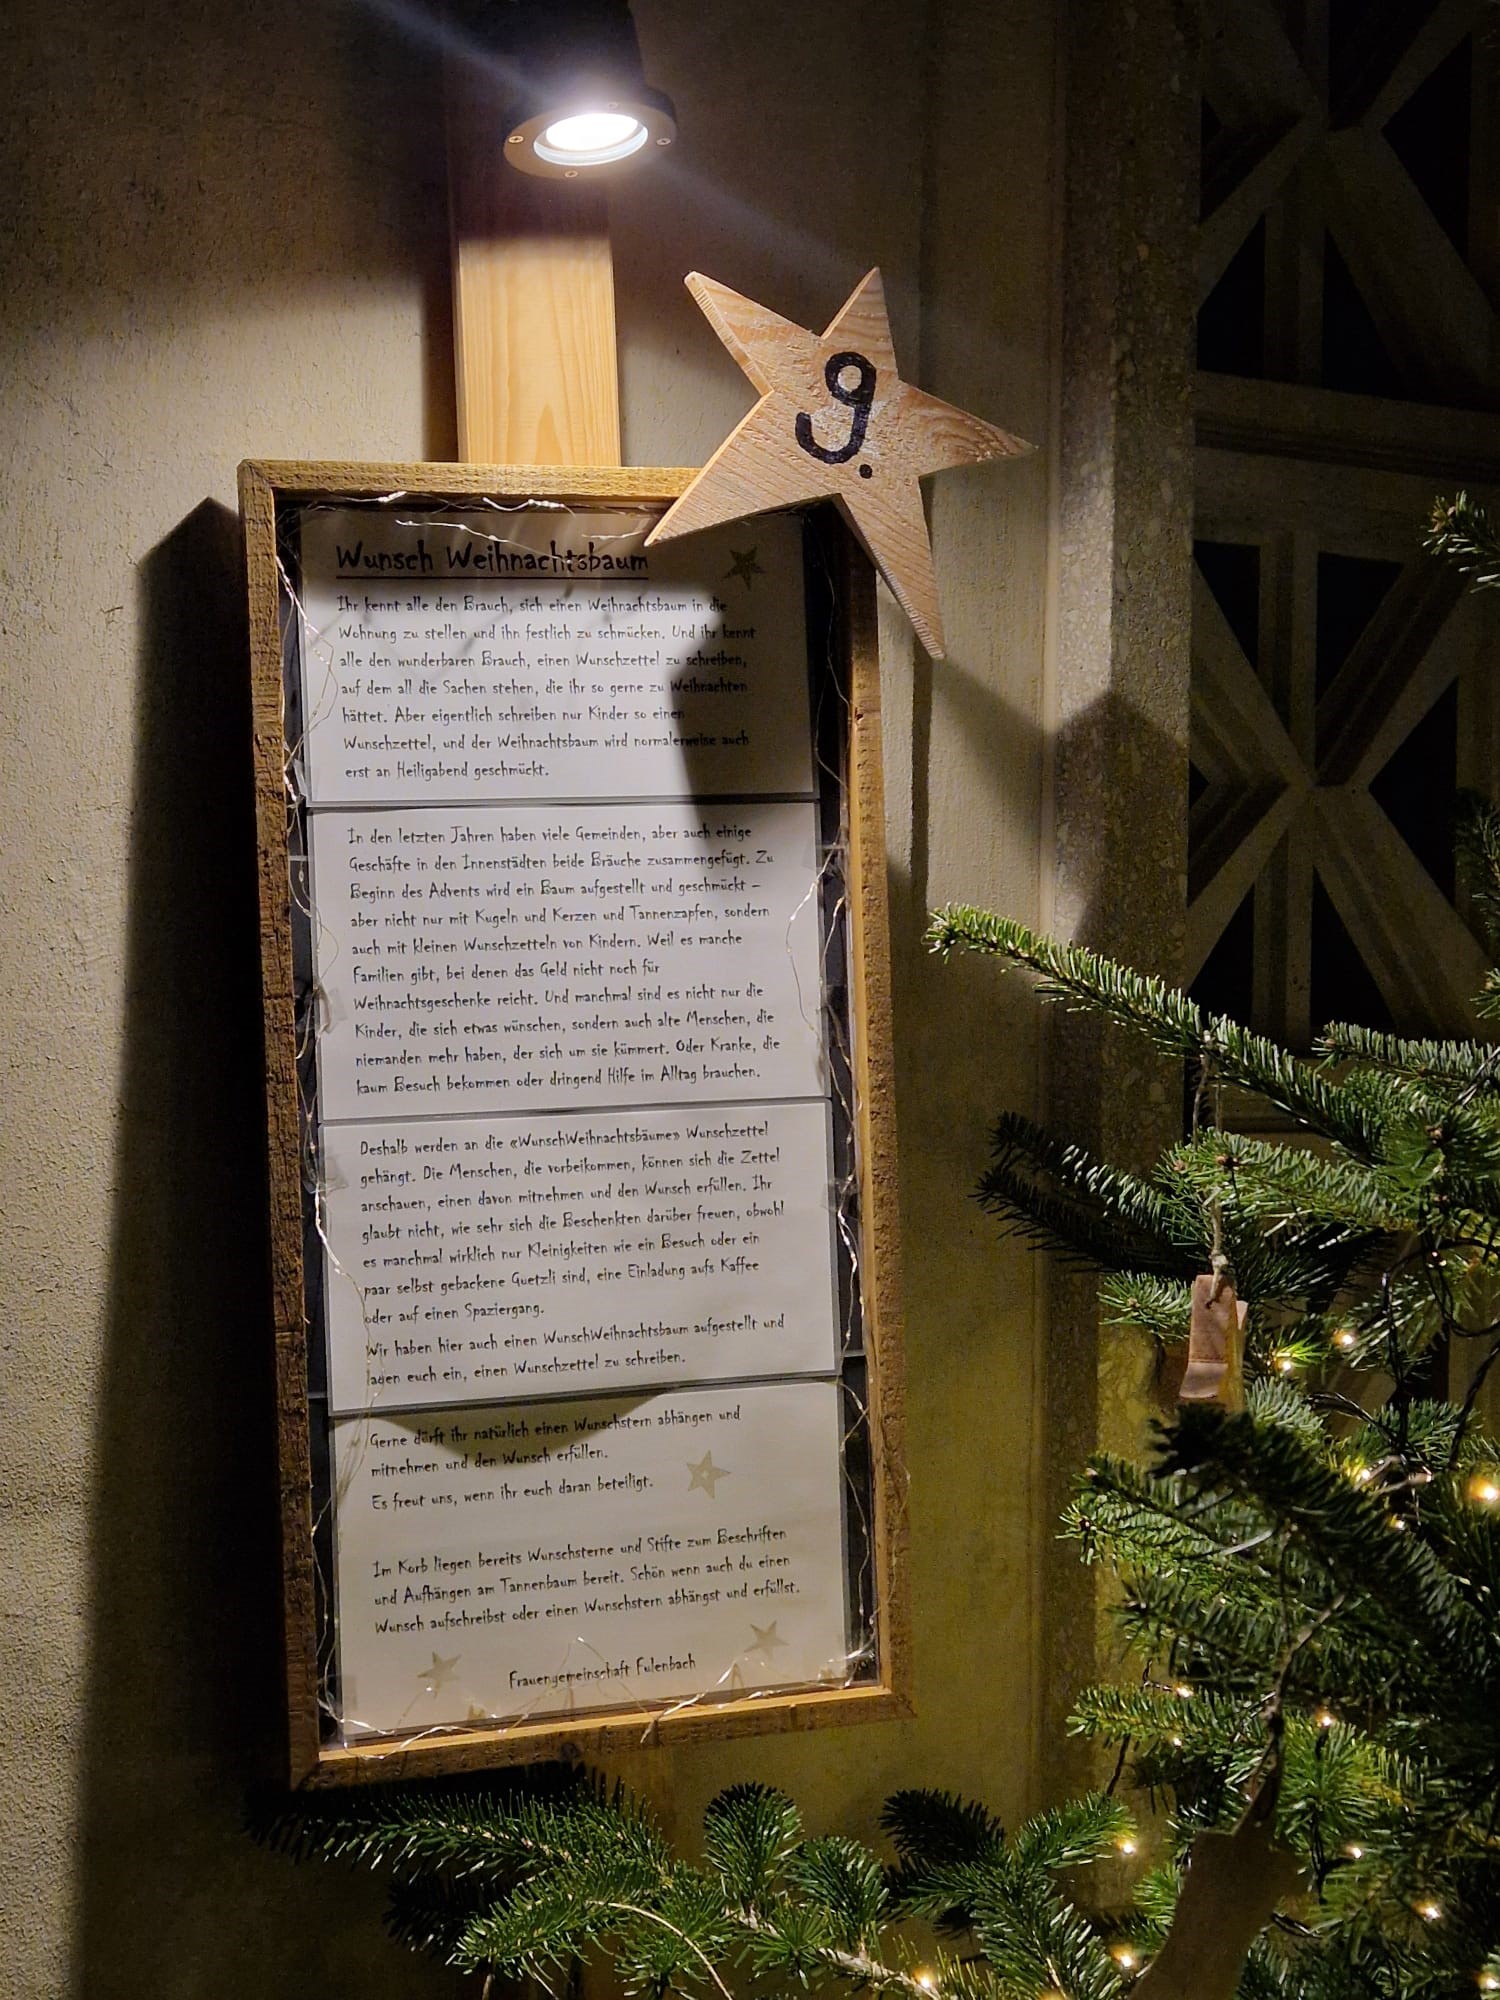 9.
Wunsch Weihnachtsbaum
Ihr kennt alle den Brauch, sich einen Weihnachtsbaum in die
Wohnung zu stellen und ihn festlich zu schmücken. Und ihr kennt
alle den wunderbaren Brauch, einen Wunschzettel zu schreiben,
auf dem all die Sachen stehen, die ihr so gerne zu Weihnachten
hättet. Aber eigentlich schreiben nur Kinder so einen
Wunschzettel, und der Weihnachtsbaum wird normalerweise auch
erst an Heiligabend geschmückt.
In den letzten Jahren haben viele Gemeinden, aber auch einige
Geschäfte in den Innenstädten beide Bräuche zusammengefügt. Zu
Beginn des Advents wird ein Baum aufgestellt und geschmückt –
aber nicht nur mit Kugeln und Kerzen und Tannenzapfen, sondern
auch mit kleinen Wunschzetteln von Kindern. Weil es manche
Familien gibt, bei denen das Geld nicht noch für
Weihnachtsgeschenke reicht. Und manchmal sind es nicht nur die
Kinder, die sich etwas wünschen, sondern auch alte Menschen, die
niemanden mehr haben, der sich um sie kümmert. Oder Kranke, die
kaum Besuch bekommen oder dringend Hilfe im Alltag brauchen.
Deshalb werden an die «WunschWeihnachtsbäume» Wunschzettel
gehängt. Die Menschen, die vorbeikommen, können sich die Zettel
anschauen, einen davon mitnehmen und den Wunsch erfüllen. Ihr
glaubt nicht, wie sehr sich die Beschenkten darüber freuen, obwohl
es manchmal wirklich nur Kleinigkeiten wie ein Besuch oder ein
paar selbst gebackene Guetzli sind, eine Einladung aufs Kaffee
oder auf einen Spaziergang.
Wir haben hier auch einen WunschWeihnachtsbaum aufgestellt und
laden euch ein, einen Wunschzettel zu schreiben.
Gerne dürft ihr natürlich einen Wunschstern abhängen und
mitnehmen und den Wunsch erfüllen.
Es freut uns, wenn ihr euch daran beteiligt.
Im Korb liegen bereits Wunschsterne und Stifte zum Beschriften
und Aufhängen am Tannenbaum bereit. Schön wenn auch du einen
Wunsch aufschreibst oder einen Wunschstern abhängst und erfüllst.
Frauengemeinschaft Fulenbach